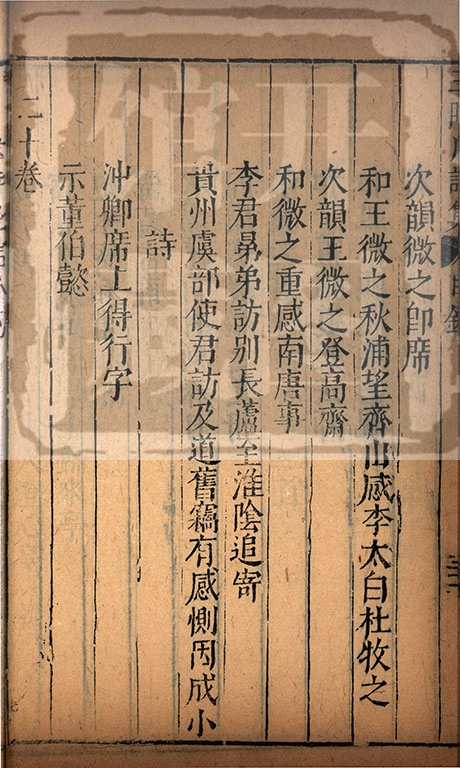 次韻微之即席
和王微之秋浦望齊山感李太白杜牧之
次韻王微之登高齋
和微之重感南唐事
李君昴弟訪别長蘆至淮陰追寄
貴州虞部使君訪及道舊竊有感惻因成小
詩
沖卿席上得行字
示董伯懿
二十卷